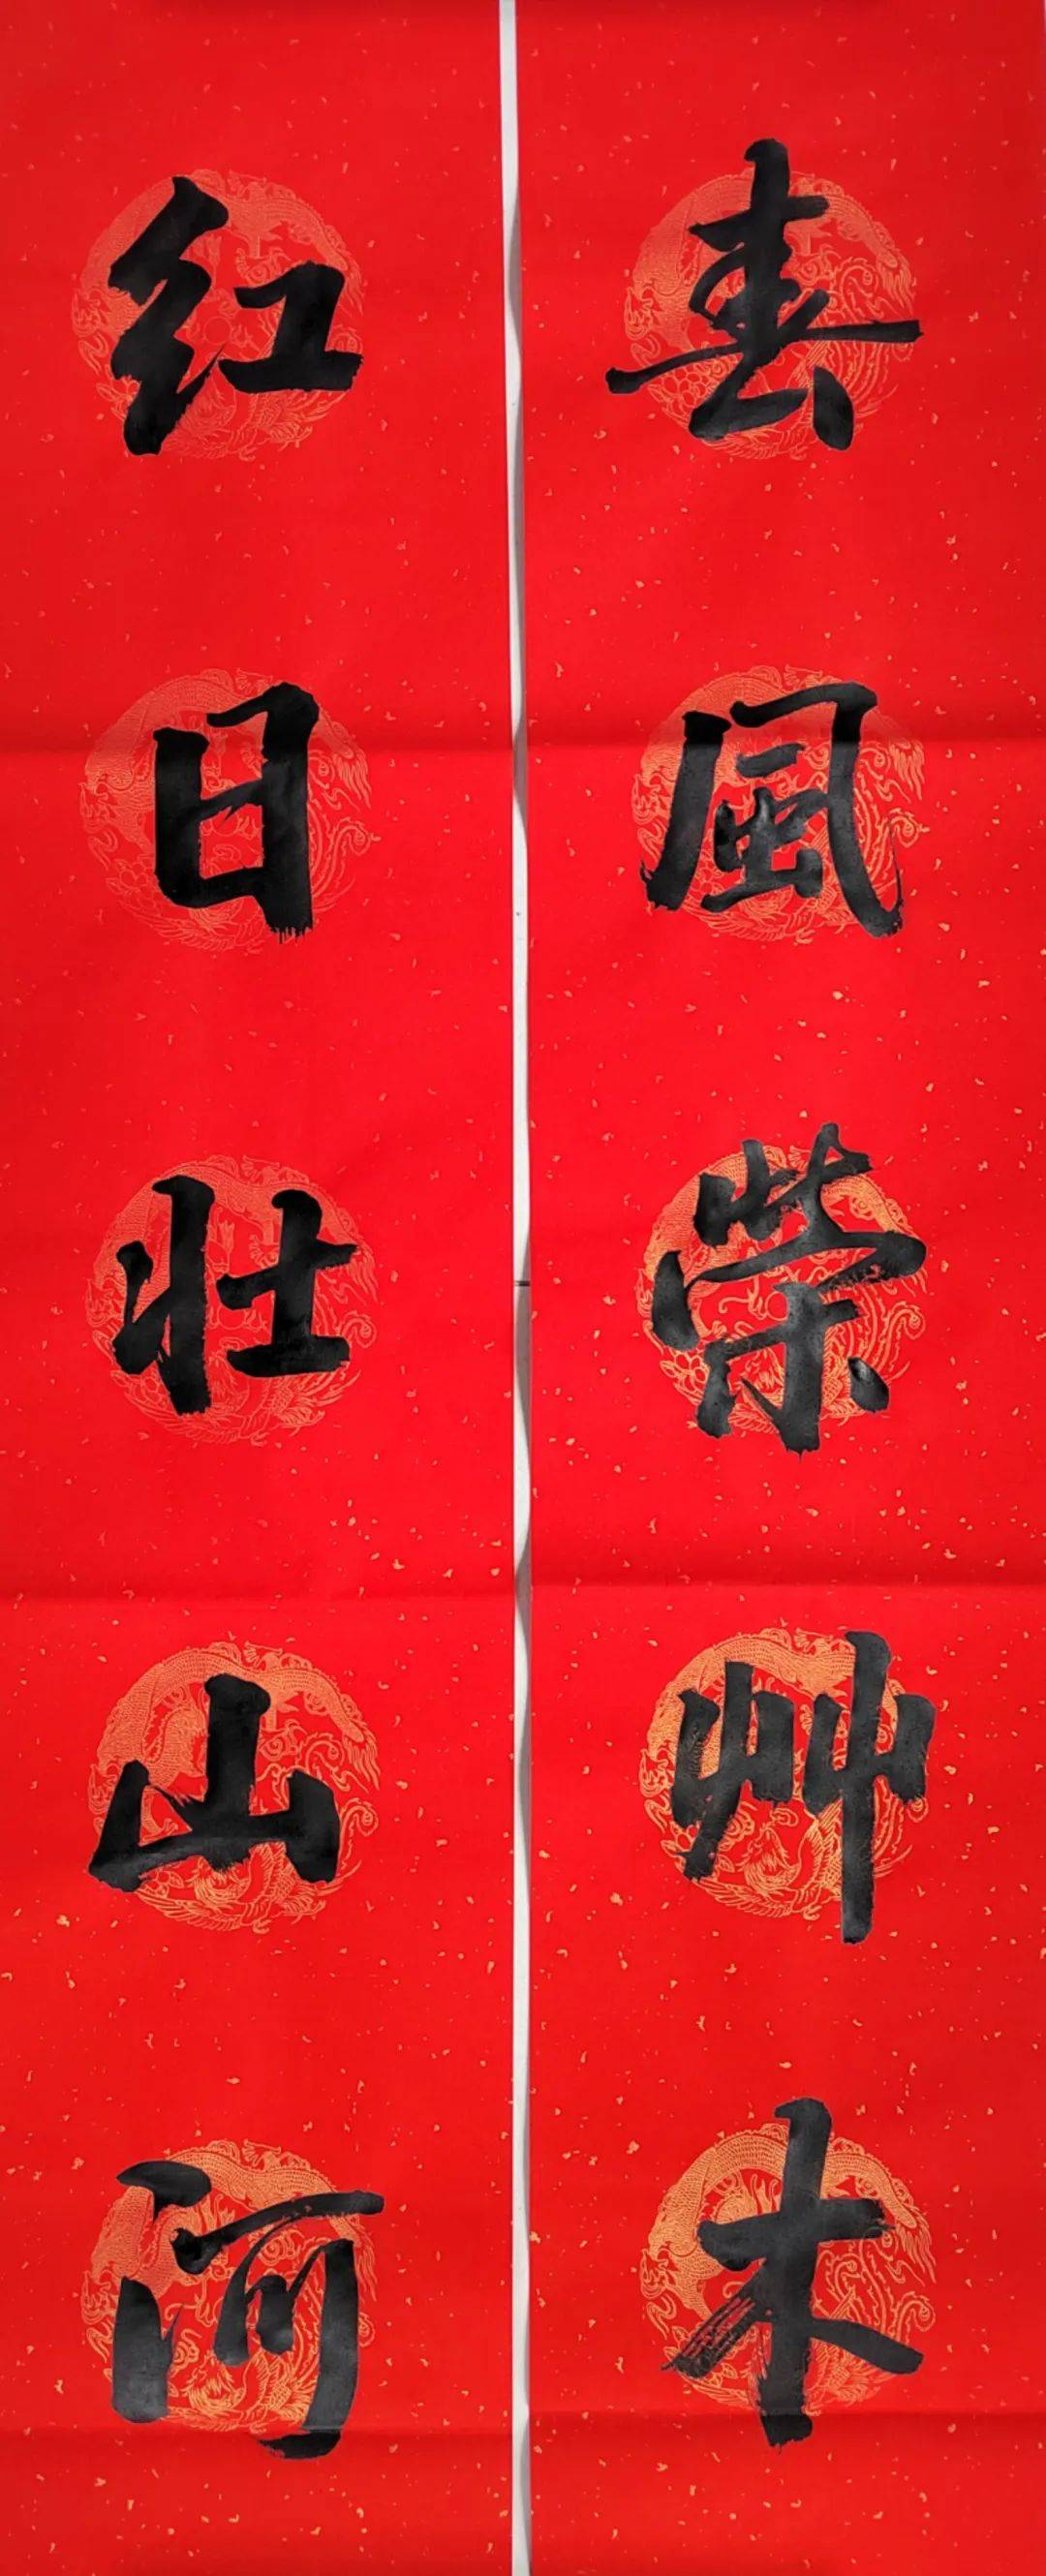 春風榮艸木
红日壮山河